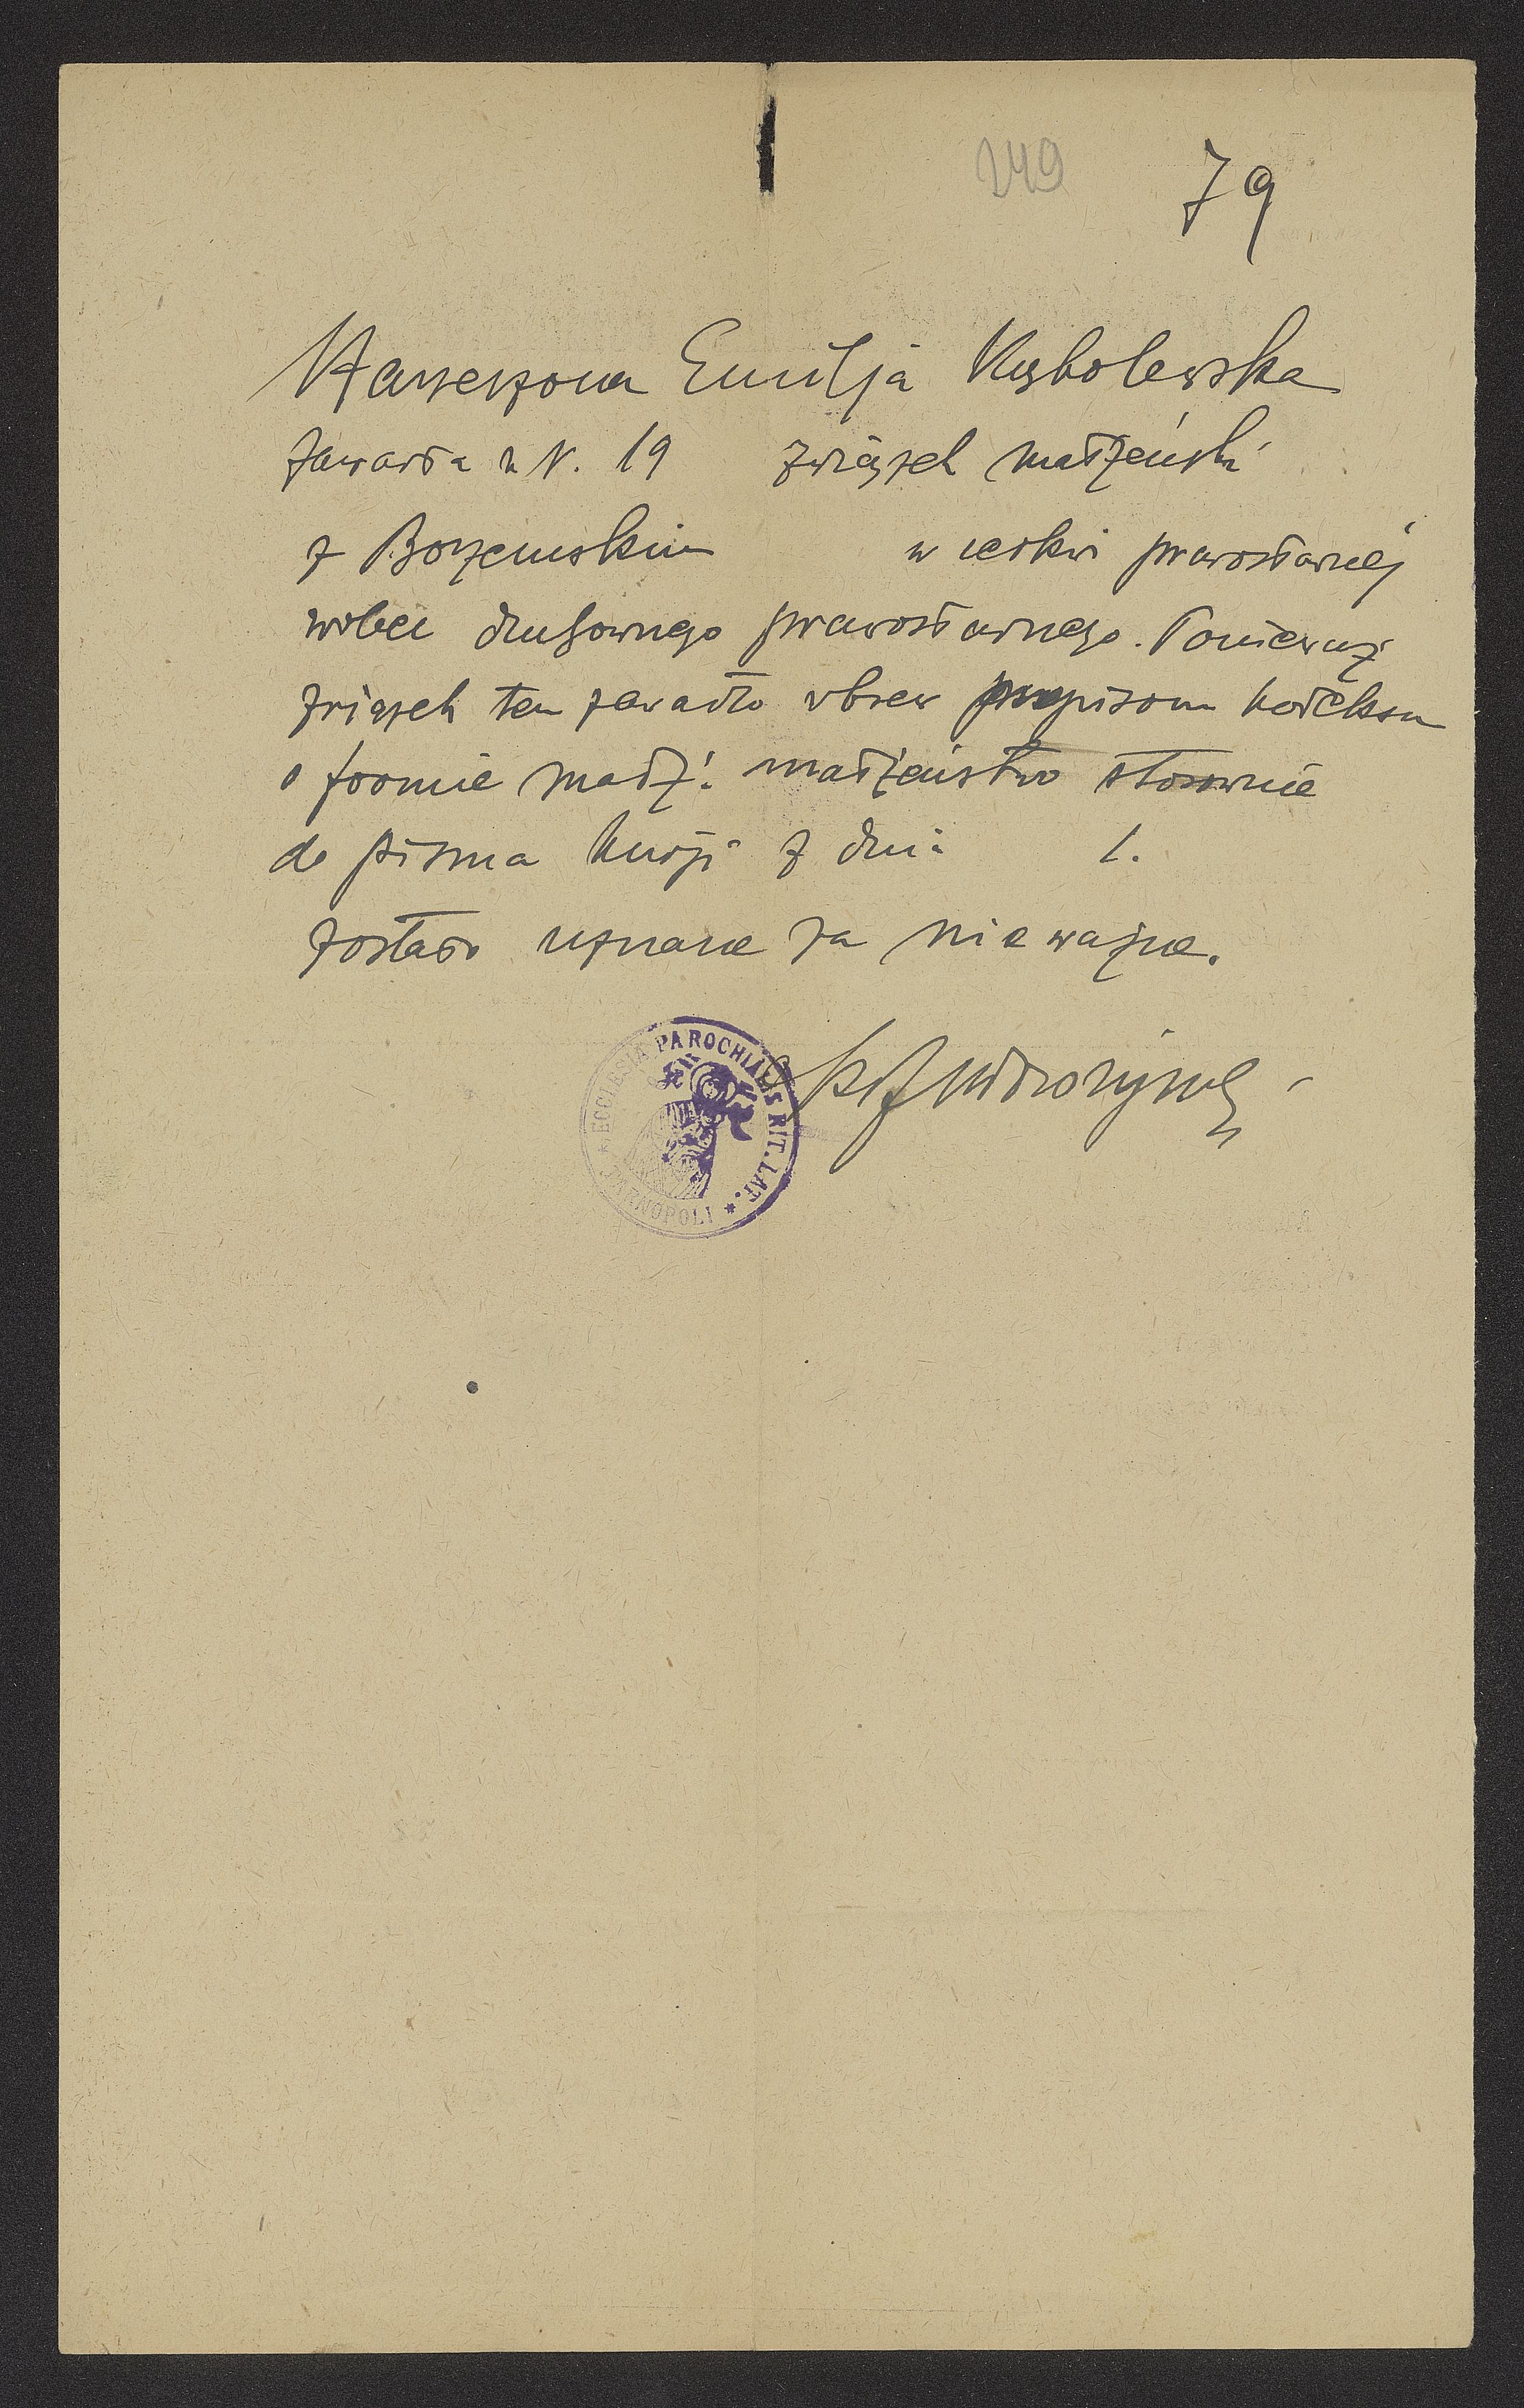 249 79
Emilja Kąkolewska
zawarła w r. 19 związek małżeński
z Borzemskim w cerkwi prawosławnej
wobec duchownego prawosławnego. Ponieważ
związek ten zawarto wbrew przepisom kodeksu
o formie małż. małżeństwo stosownie
do pisma Kurji z dnia l.
zostało uznane za nieważne.
ECCLESIA PAROCHIALIS RIT. LAT.
TARNOPOLI